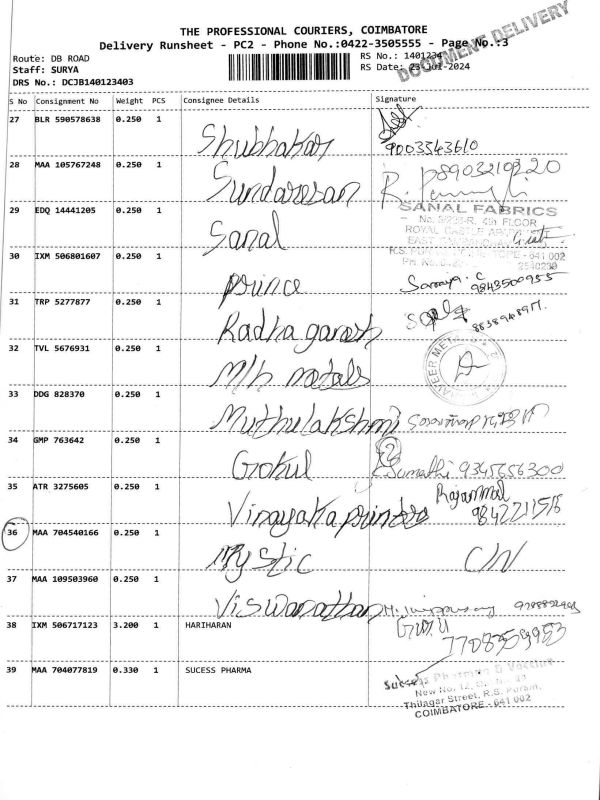 DOCUMENT DELIVERY
THE PROFESSIONAL COURIERS, COIMBATORE
Delivery Runsheet - PC2 - Phone No.:0422-3505555 - Page No.:3
Route: DB ROAD
RS No.: 1401234
Staff: SURYA
RS Date: 23-Jul-2024
DRS No.: DCJB140123403
S No Consignment No Weight PCS Consignee Details Signature
27 BLR 590578638 0.250 1 Shubhakar 9003543610
28 MAA 105767248 0.250 1 Sundaresan R. 8903210220
29 EDQ 14441205 0.250 1 Sanal
SANAL FABRICS
4th FLOOR
ROYAL CASTLE
EAST
641 002
30 IXM 506801607 0.250 1 prince Saranya. C 9843500955
31 TRP 5277877 0.250 1 Radha ganesh
32 TVL 5676931 0.250 1 M/h metals
33 DDG 828370 0.250 1 Muthulakshmi
34 GMP 763642 0.250 1 Gokul Sumathi 9345656300
35 ATR 3275605 0.250 1 Vinayaka printers Rajammal
36 MAA 704540166 0.250 1 Mystic C/N
37 MAA 109503960 0.250 1 Viswanathan
38 IXM 506717123 3.200 1 HARIHARAN
39 MAA 704077819 0.330 1 SUCESS PHARMA
Success Pharma & Vaccine
New No. 12,
Thilagar Street, R.S. Puram,
COIMBATORE - 641 002